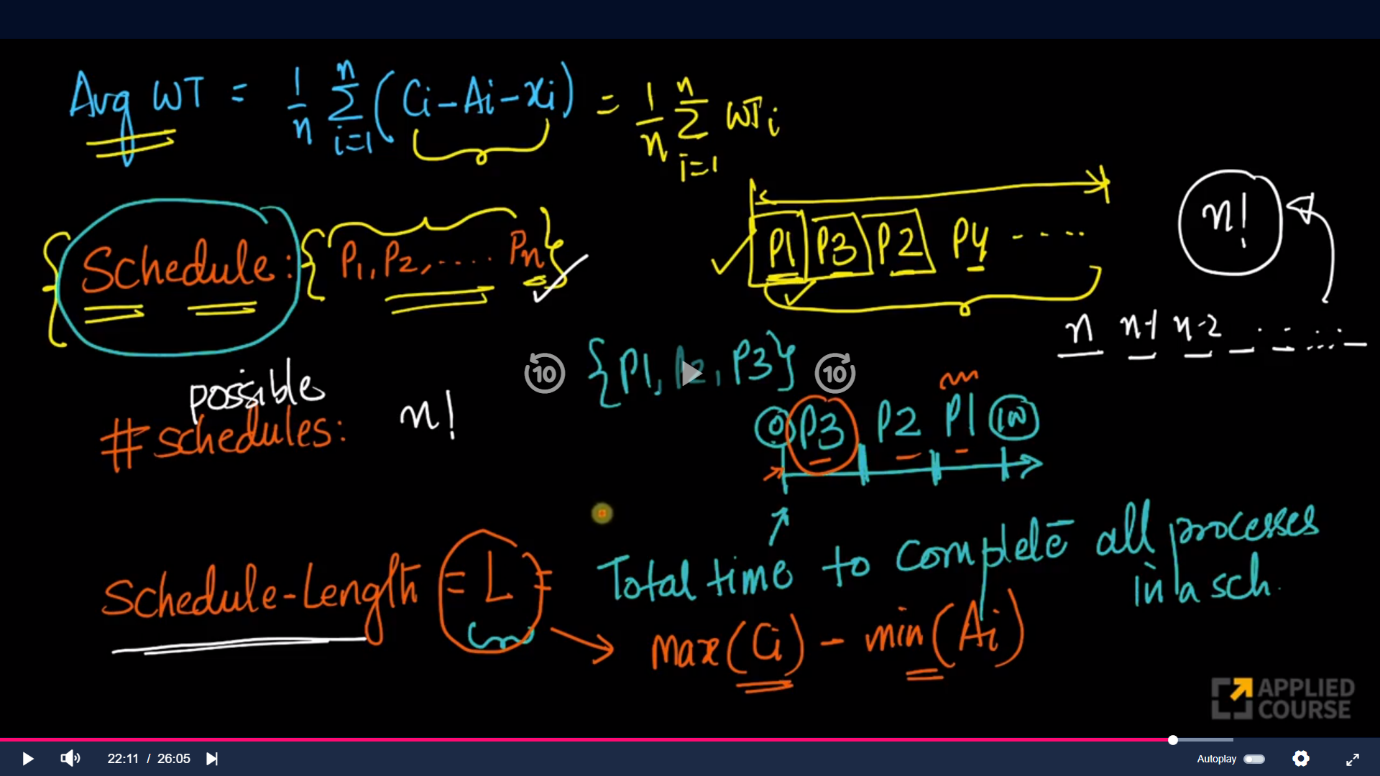 Avg WT = 1/n Σ i=1 n (Ci - Ai - xi) = 1/n Σ i=1 n WTi
Schedule: {P1, P2, .... Pn}
P1 P3 P2 P4 - ....
n!
n n-1 n-2 . . ... 
possible
# schedules: n!
{P1, P2, P3}
0 P3 P2 P1 100
10
10
Schedule-Length = L = Total time to complete all processes in a sch.
max(Ci) - min(Ai)
APPLIED
COURSE
22:11 / 26:05
Autoplay